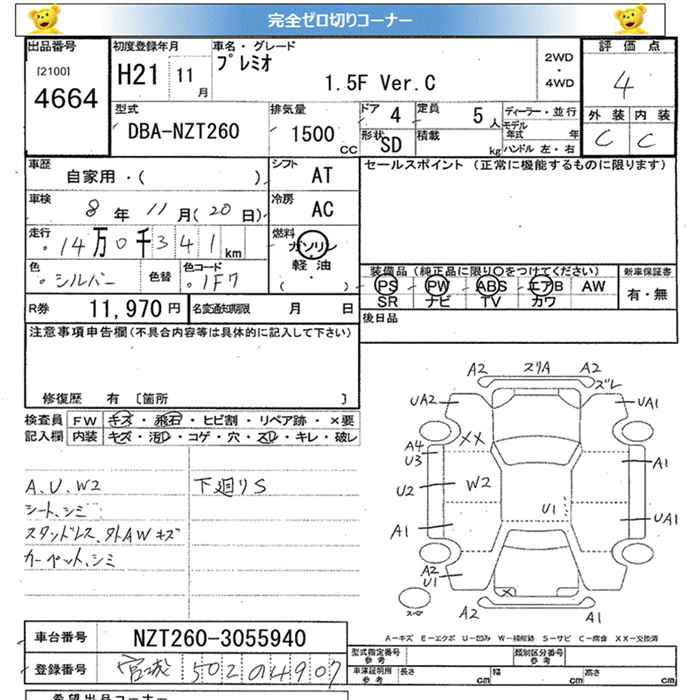 完全ゼロ切りコーナー
出品番号
[2100]
4664
初度登録年月
H21 11 月
車名・グレード
プレミオ
1.5F Ver.C
2WD
・
4WD
評価点
4
外装 内装
C C
型式
DBA-NZT260
排気量
1500 CC
ドア 4
形状 SD
定員 5 人
積載 kg
ディーラー・並行
モデル
年式 年
ハンドル 左・右
車歴
自家用・( )
シフト AT
車検
8 年 11 月 (20 日)
冷房 AC
走行
14 万 0 千 3 4 1 km
燃料
ガソリン
・
軽油
( )
色
シルバー
色替
色コード
1F7
R券 11,970 円
名変通知期限 月 日
セールスポイント (正常に機能するものに限ります)
装備品 (純正品に限り○をつけてください)
PS PW ABS エアB AW
SR ナビ TV カワ
新車保証書
有・無
後日品
注意事項申告欄(不具合内容等は具体的に記入して下さい)
修復歴 有 [箇所 ]
検査員 FW キズ・飛石・ヒビ割・リペア跡・×要
記入欄 内装 キズ・汚レ・コゲ・穴・スレ・キレ・破レ
A、U、W2
シート、シミ
スタッドレス、外AWキズ
カーペット、シミ
下廻りS
A2 スリA A2
ズレ
UA2 UA1
XX
A4
U3 A1
U2 W2
U1 UA1
A1
A2
U1
X
スペア
A2 A1
A－キズ E－エクボ U－凹み W－補修跡 S－サビ C－腐食 XX－交換済
車台番号 NZT260-3055940
登録番号 宮城 502 の 4907
型式指定番号
参考
類別区分番号
参考
車庫証明用
参考
長さ cm 幅 cm 高さ cm
希望出品コーナー